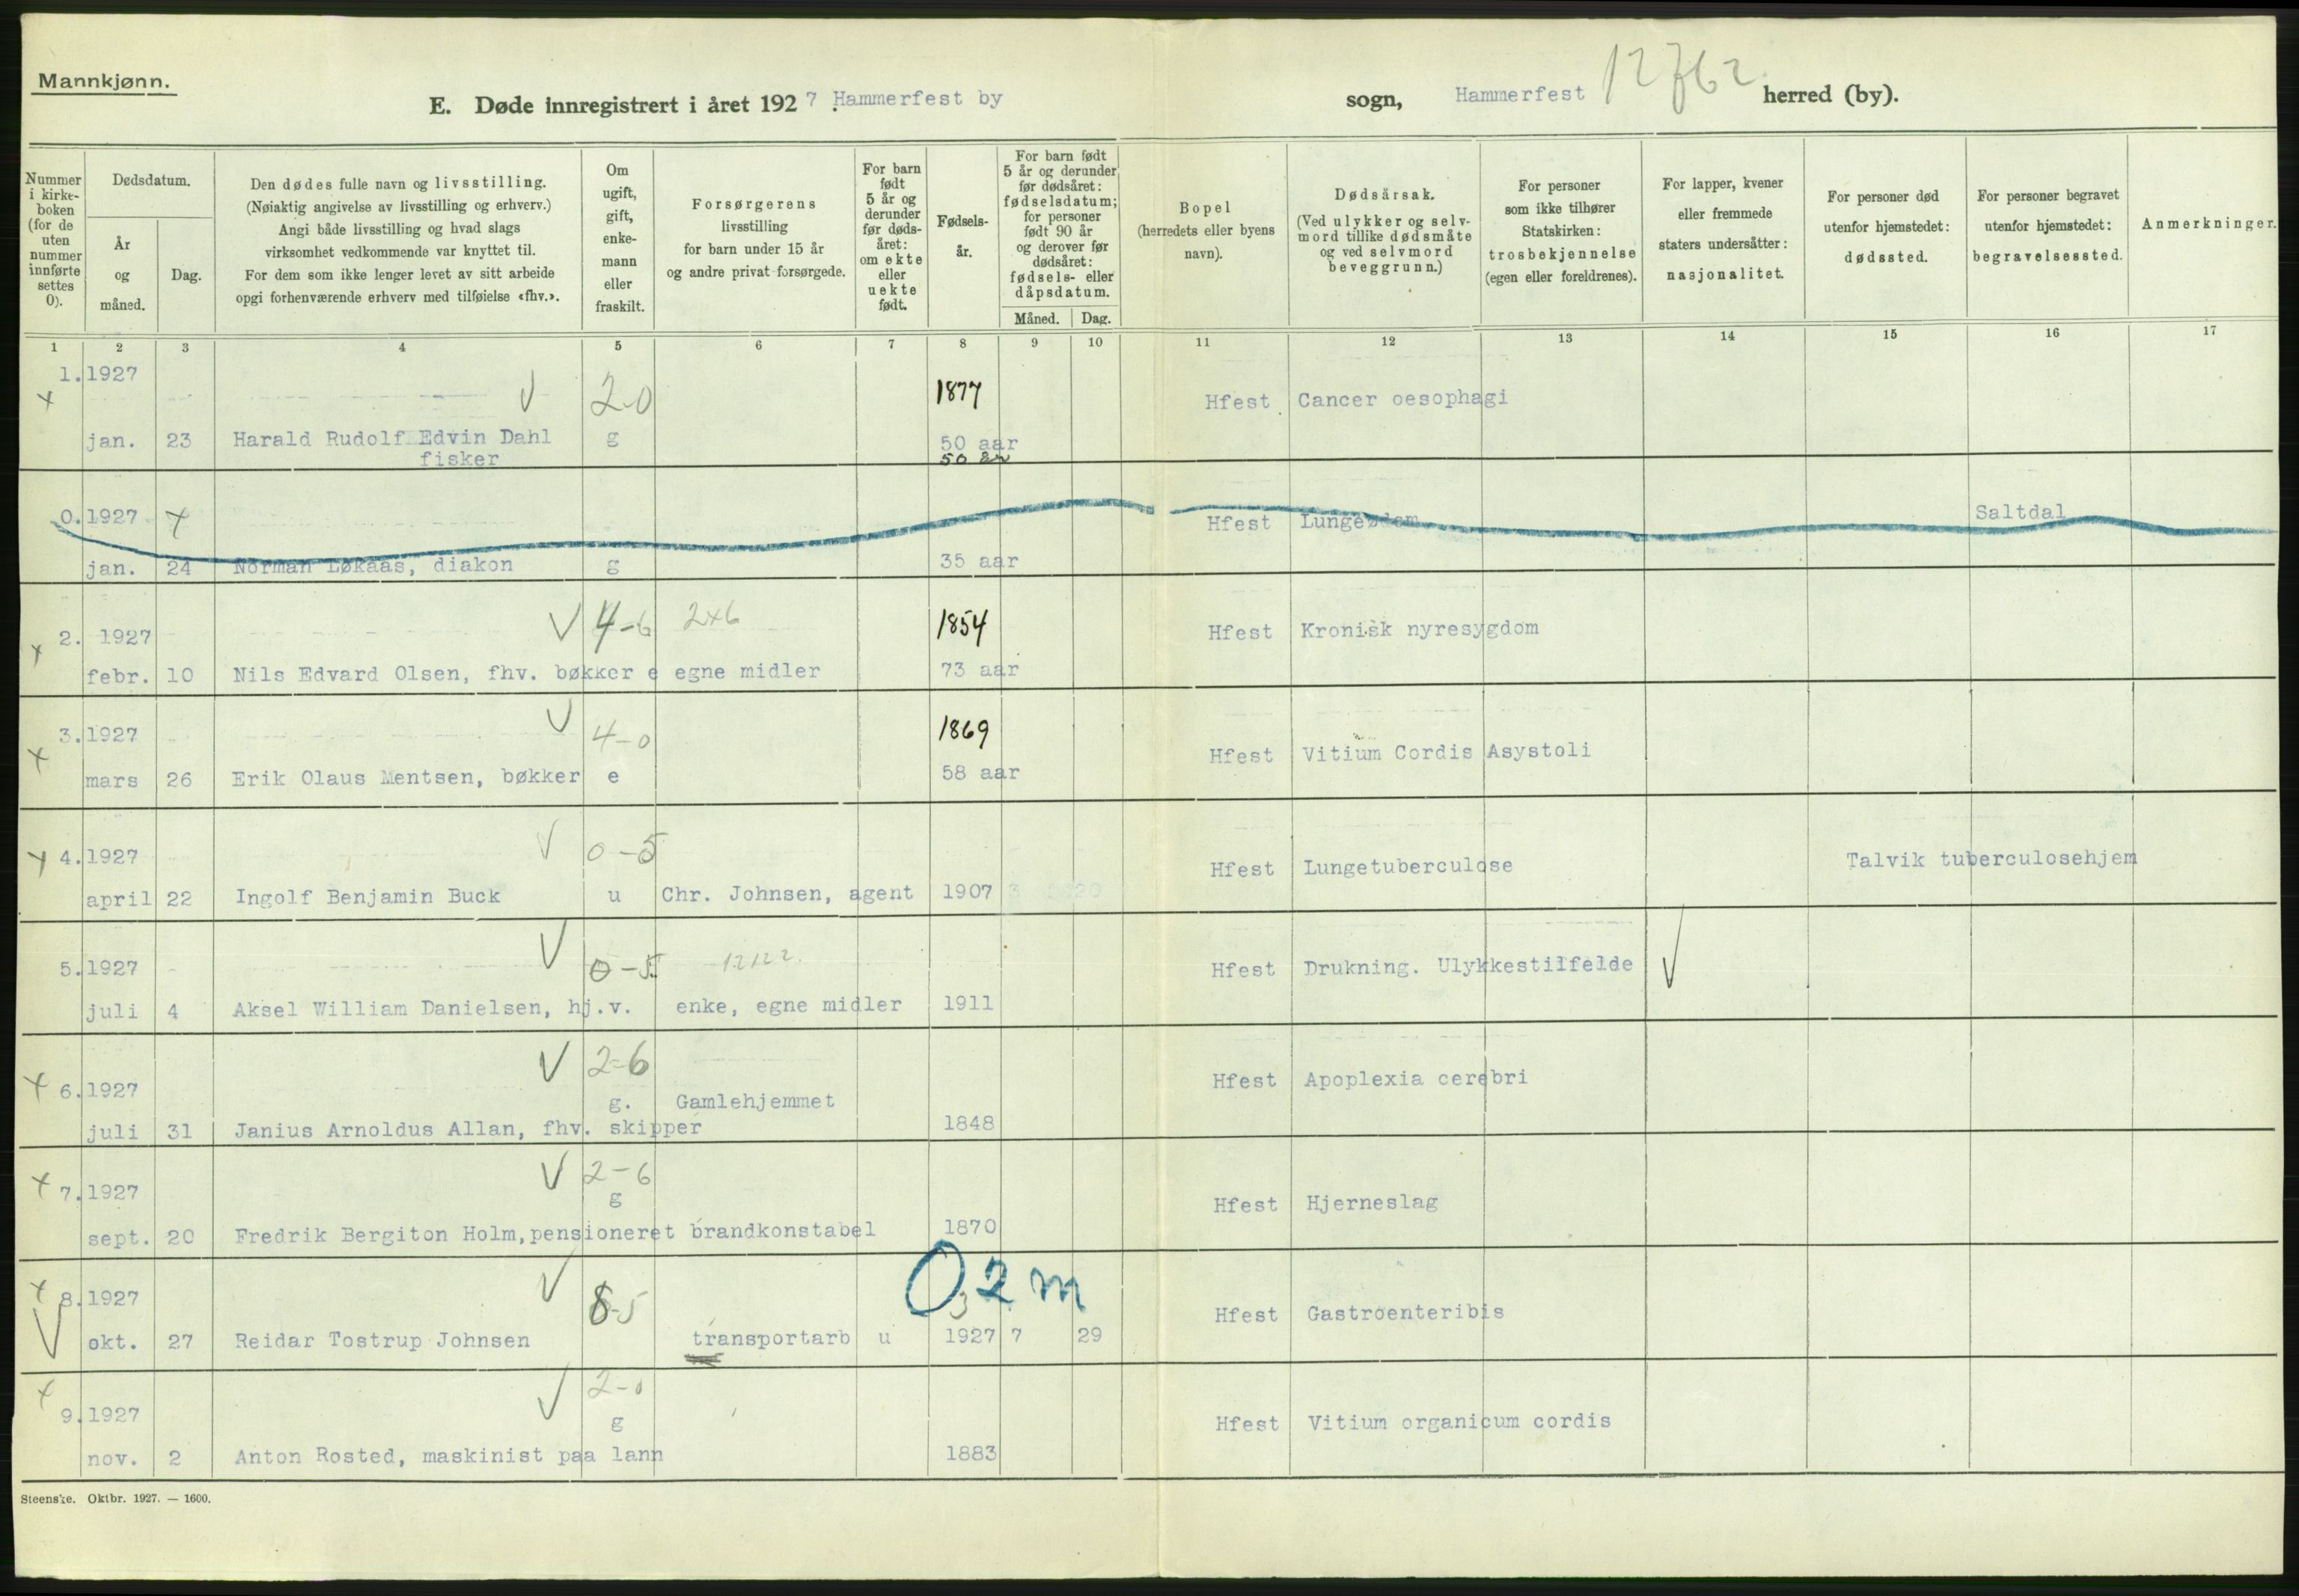 Mannkjønn.
E. Døde innregistrert i året 1927 Hammerfest by sogn, Hammerfest herred (by).
12762
Nummer i kirke-boken (for de uten nummer innførte settes 0).
Dødsdatum.
År og måned.
Dag.
Den dødes fulle navn og livsstilling.
(Nøiaktig angivelse av livsstilling og erhverv.)
Angi både livsstilling og hvad slags
virksomhet vedkommende var knyttet til.
For dem som ikke lenger levet av sitt arbeide
opgi forhenværende erhverv med tilføielse «fhv.».
Om ugift, gift, enke-mann eller fraskilt.
Forsørgerens
livsstilling
for barn under 15 år
og andre privat forsørgede.
For barn født 5 år og derunder før døds-året: om ekte eller uekte født.
Fødsels-år.
For barn født
5 år og derunder
før dødsåret:
fødselsdatum;
for personer
født 90 år
og derover før
dødsåret:
fødsels- eller
dåpsdatum.
Måned. Dag.
Bopel
(herredets eller byens
navn).
Dødsårsak.
(Ved ulykker og selv-
mord tillike dødsmåte
og ved selvmord
beveggrunn.)
For personer
som ikke tilhører
Statskirken:
trosbekjennelse
(egen eller foreldrenes).
For lapper, kvener
eller fremmede
staters undersåtter:
nasjonalitet.
For personer død
utenfor hjemstedet:
dødssted.
For personer begravet
utenfor hjemstedet:
begravelsessted.
Anmerkninger.
1 2 3 4 5 6 7 8 9 10 11 12 13 14 15 16 17
1. 1927 2-0 1877 Hfest Cancer oesophagi
jan. 23 Harald Rudolf Edvin Dahl g 50 aar
fisker 50 år
0. 1927 Hfest Lungeødem Saltdal
jan. 24 Norman Løkaas, diakon g 35 aar
2. 1927 4-6 2x6 1854 Hfest Kronisk nyresygdom
febr. 10 Nils Edvard Olsen, fhv. bøkker e egne midler 73 aar
3. 1927 4-0 1869 Hfest Vitium Cordis Asystoli
mars 26 Erik Olaus Mentsen, bøkker e 58 aar
4. 1927 0-5 Hfest Lungetuberculose Talvik tuberculosehjem
april 22 Ingolf Benjamin Buck u Chr. Johnsen, agent 1907
5. 1927 0-5 12122. Hfest Drukning. Ulykkestilfelde
juli 4 Aksel William Danielsen, hj.v. enke, egne midler 1911
6. 1927 2-6 Hfest Apoplexia cerebri
g. Gamlehjemmet
juli 31 Janius Arnoldus Allan, fhv. skipper 1848
7. 1927 2-6 Hfest Hjerneslag
g
sept. 20 Fredrik Bergiton Holm, pensioneret brandkonstabel 1870
8. 1927 8-5 0 2 m 3 Hfest Gastroenteribis
okt. 27 Reidar Tostrup Johnsen transportarb u 1927 7 29
9. 1927 2-0 Hfest Vitium organicum cordis
g
nov. 2 Anton Rosted, maskinist paa lann 1883
Steenske. Oktbr. 1927. — 1600.